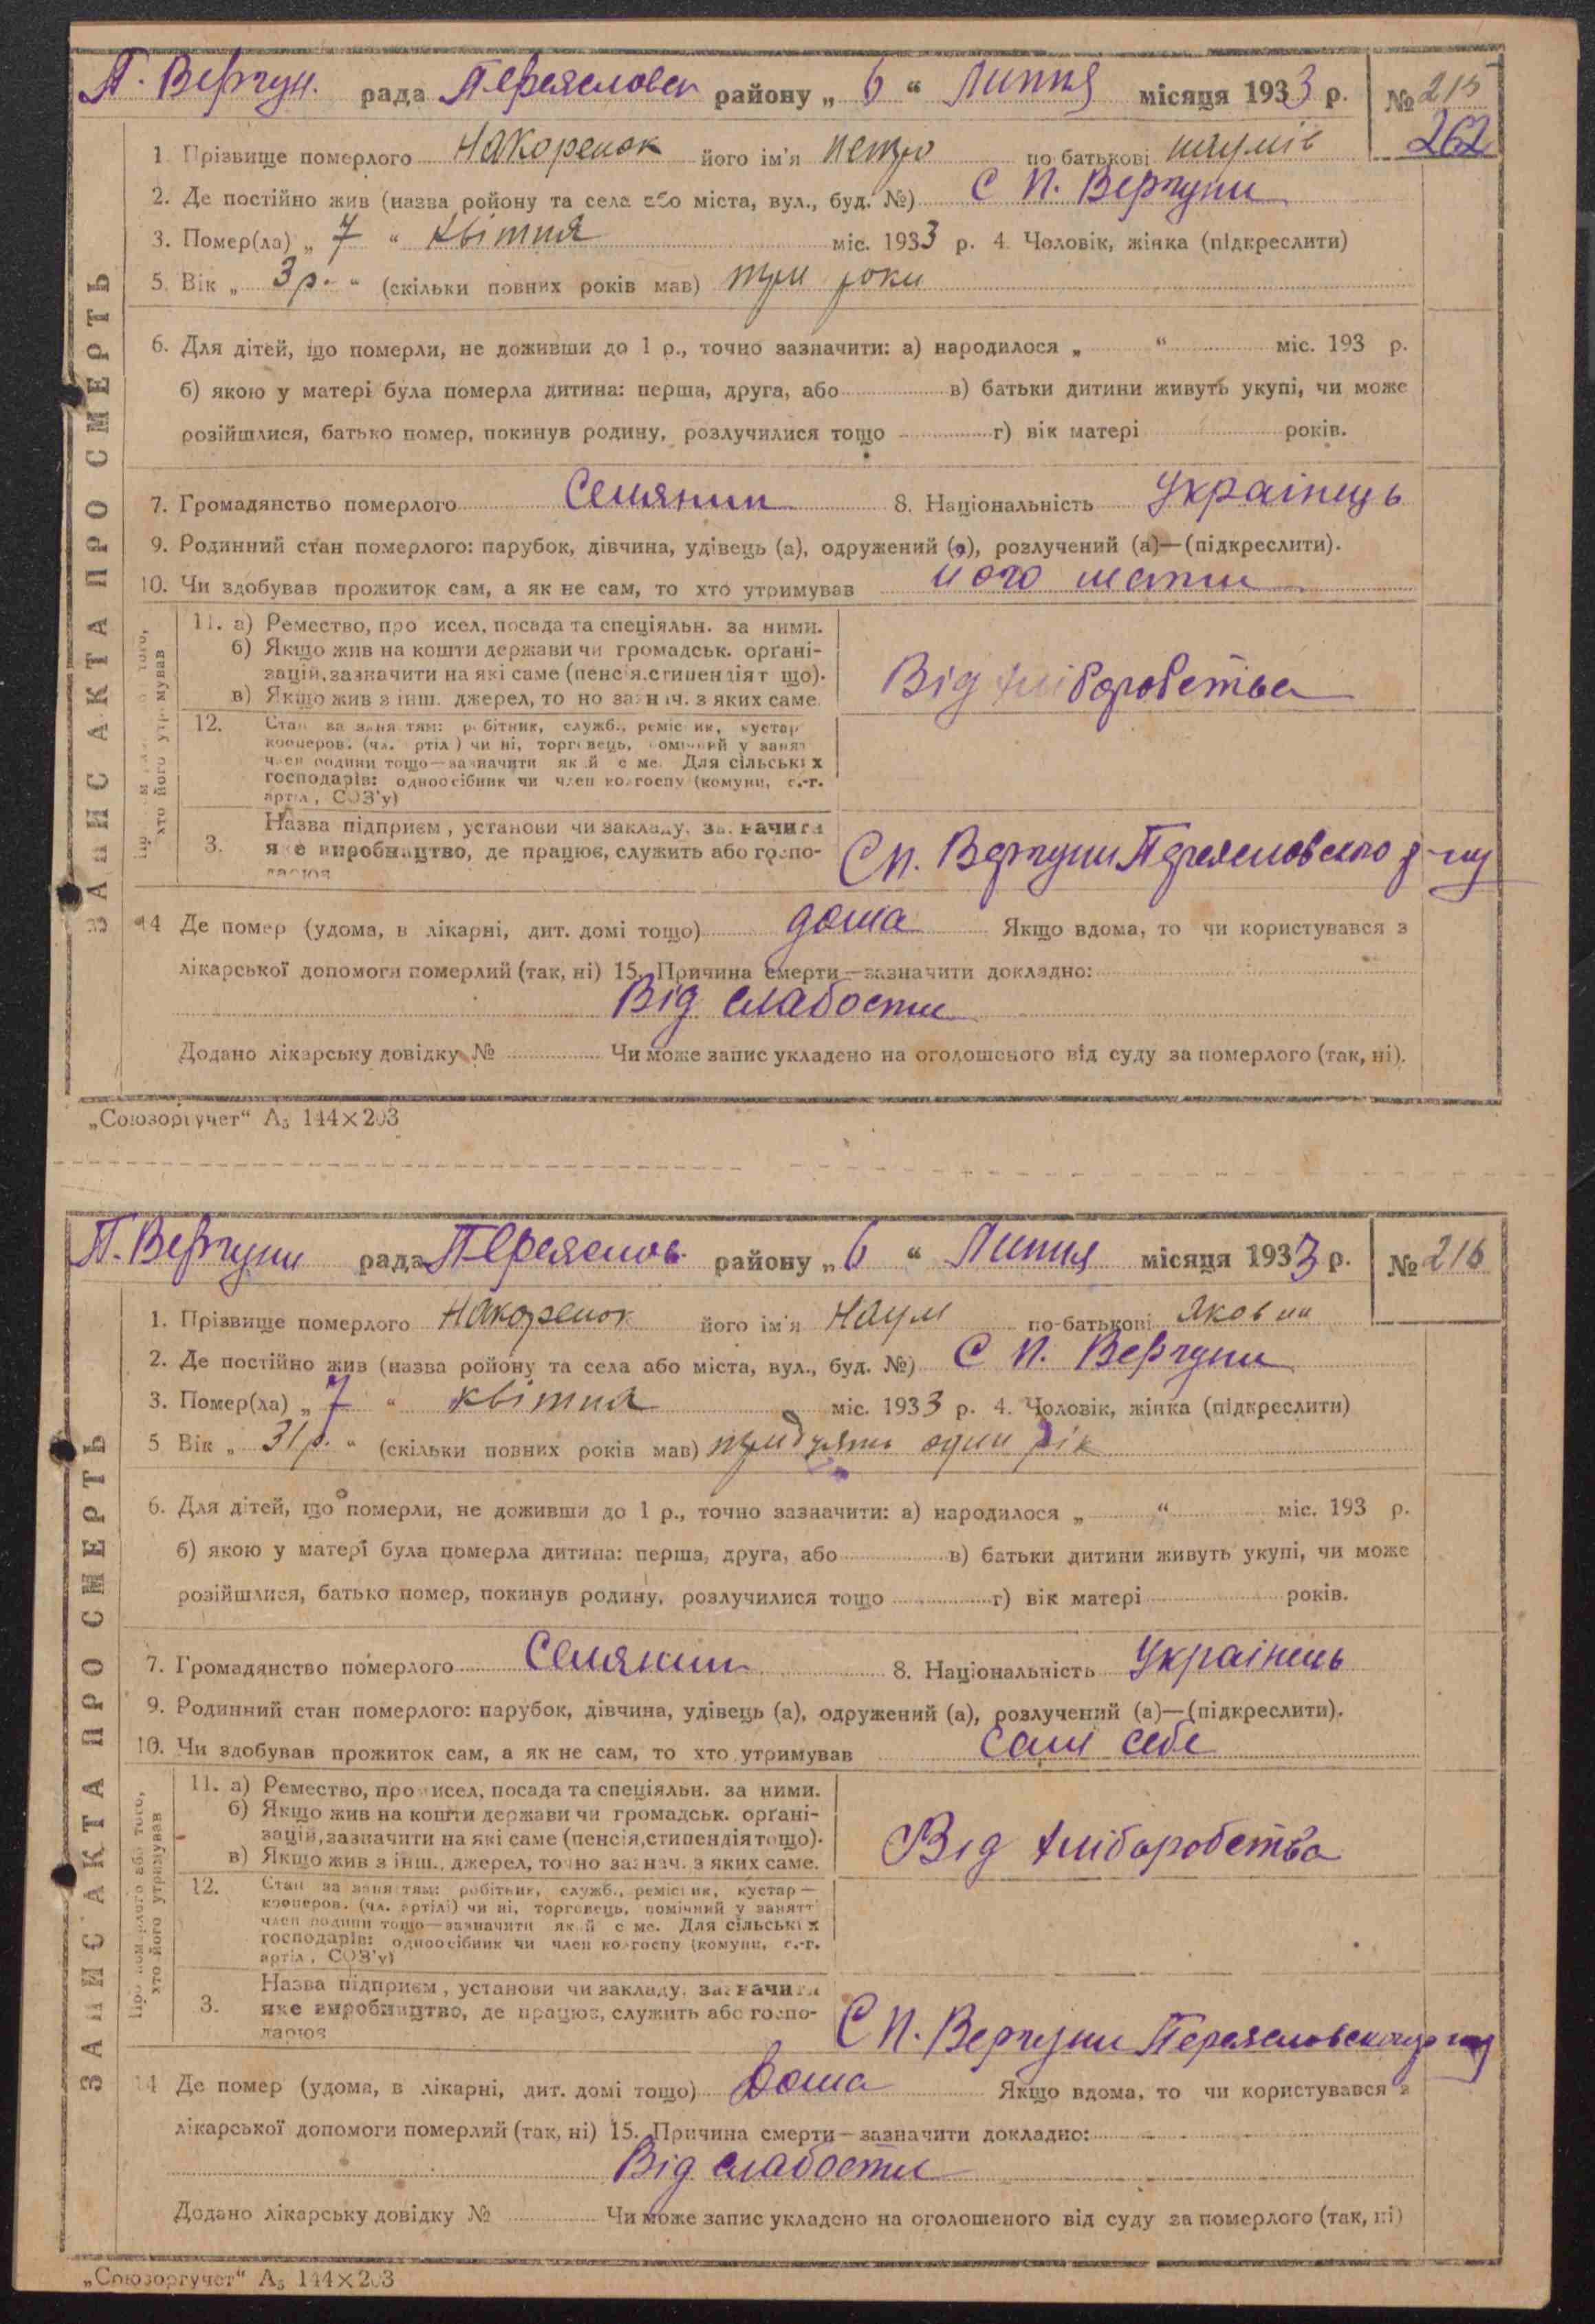 П. Вергун. рада Переяславськ району „ 6 “ Липня місяця 1933 р. № 215
262
1. Прізвище померлого Накоренок його ім'я Петро по батькові Наумів
2. Де постійно жив (назва ройону та села або міста, вул., буд. №) С П. Вергуни
3. Помер(ла) „ 7 “ квітня міс. 1933 р. 4. Чоловік, жінка (підкреслити)
5. Вік „ 3 р. “ (скільки повних років мав) три роки
6. Для дітей, що померли, не доживши до 1 р., точно зазначити: а) народилося „ “ міс. 193 р.
б) якою у матері була померла дитина: перша, друга, або в) батьки дитини живуть укупі, чи може
розійшлися, батько помер, покинув родину, розлучилися тощо г) вік матері років.
7. Громадянство померлого Селянин 8. Національність Украінець
9. Родинний стан померлого: парубок, дівчина, удівець (а), одружений (а), розлучений (а)—(підкреслити).
10. Чи здобував прожиток сам, а як не сам, то хто утримував його мати
11. а) Ремество, про исел, посада та спеціяльн. за ними.
б) Якщо жив на кошти держави чи громадськ. орґані-
зацій, зазначити на які саме (пенсія, стипендія т що).
в) Якщо жив з інш. джерел, то но зазнач. з яких саме.
Від хліборобства
12. Стан за заняттям: робітник, служб., реміс ик, кустар
кооперов. (чл. ртіл ) чи ні, торговець, помічний у занят
член родини тощо—зазначити як й с ме. Для сільськ х
господарів: одноосібник чи член колгоспу (комуни, с.-г.
артіл , СОЗ'у)
3. Назва підприєм , установи чи закладу, зазначити
яке виробництво, де працює, служить або госпо-
дарює
С П. Вергуни Переясловского р-ну
14 Де помер (удома, в лікарні, дит. домі тощо) дома Якщо вдома, то чи користувався з
лікарської допомоги померлий (так, ні) 15. Причина смерти—зазначити докладно:
Від слабости
Додано лікарську довідку № Чи може запис укладено на оголошеного від суду за померлого (так, ні).
ЗАПИС АКТА ПРО СМЕРТЬ
„Союзоргучет“ А₅ 144×203
П. Вергуни рада Переяслов. району „ 6 “ Липня місяця 1933 р. № 216
1. Прізвище померлого Накоренок його ім'я Наум по-батькові Яковин
2. Де постійно жив (назва ройону та села або міста, вул., буд. №) С П. Вергуни
3. Помер(ла) „ 7 “ квітня міс. 1933 р. 4. Чоловік, жінка (підкреслити)
5 Вік „ 31 р. “ (скільки повних років мав) тридцять один рік
6. Для дітей, що померли, не доживши до 1 р., точно зазначити: а) народилося „ “ міс. 193 р.
б) якою у матері була померла дитина: перша, друга, або в) батьки дитини живуть укупі, чи може
розійшлися, батько помер, покинув родину, розлучилися тощо г) вік матері років.
7. Громадянство померлого Селянин 8. Національність Украінець
9. Родинний стан померлого: парубок, дівчина, удівець (а), одружений (а), розлучений (а)—(підкреслити).
10. Чи здобував прожиток сам, а як не сам, то хто утримував Сам себе
11. а) Ремество, про исел, посада та спеціяльн. за ними.
б) Якщо жив на кошти держави чи громадськ. орґані-
зацій, зазначити на які саме (пенсія, стипендія тощо).
в) Якщо жив з інш., джерел, точно зазнач. з яких саме.
Від хліборобства
12. Стан за заняттям: робітник, служб., реміс ик, кустар—
кооперов. (чл. артілі) чи ні, торговець, помічний у занятт
член родини тощо—зазначити як й с ме. Для сільськ х
господарів: одноосібник чи член колгоспу (комуни, с.-г.
артіл , СОЗ'у)
3. Назва підприєм , установи чи закладу, зазначити
яке виробництво, де працює, служить або госпо-
дарює
С П. Вергуни Переясловского р-ну
14 Де помер (удома, в лікарні, дит. домі тощо) Дома Якщо вдома, то чи користувався з
лікарської допомоги померлий (так, ні) 15. Причина смерти—зазначити докладно:
Від слабости
Додано лікарську довідку № Чи може запис укладено на оголошеного від суду за померлого (так, ні)
ЗАПИС АКТА ПРО СМЕРТЬ
„Союзоргучет“ А₅ 144×203